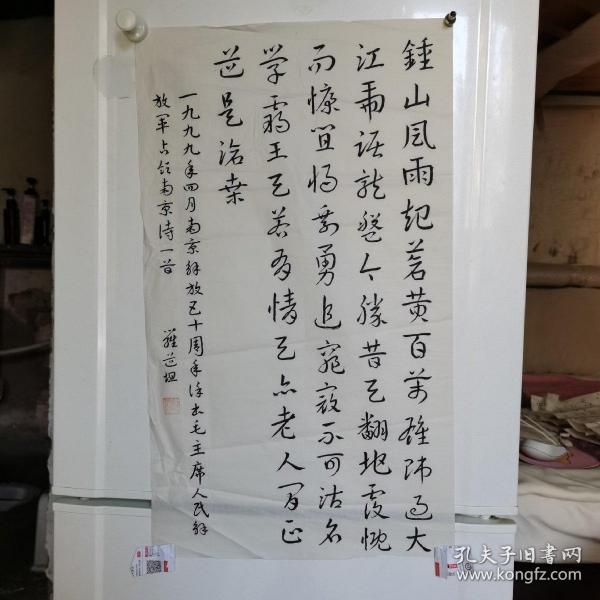 鍾山風雨起蒼黄百萬雄师過大
江虎踞龍盤今勝昔天翻地覆慨
而慷宜将剩勇追窮寇不可沽名
学霸王天若有情天亦老人间正
道是沧桑
一九九九年四月南京解放五十周年录毛主席人民解
放军占领南京诗一首
羅道坦
孔夫子旧書网
www.kongfz.com